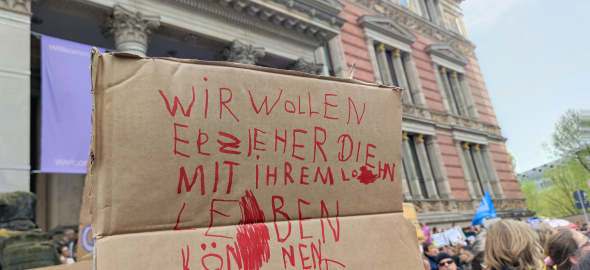 Willkommen
WiR WOLLEN
ERZiEHER DIE
MIT iHREM LOEHN
LEBEN
KÖNNEN
Welcome